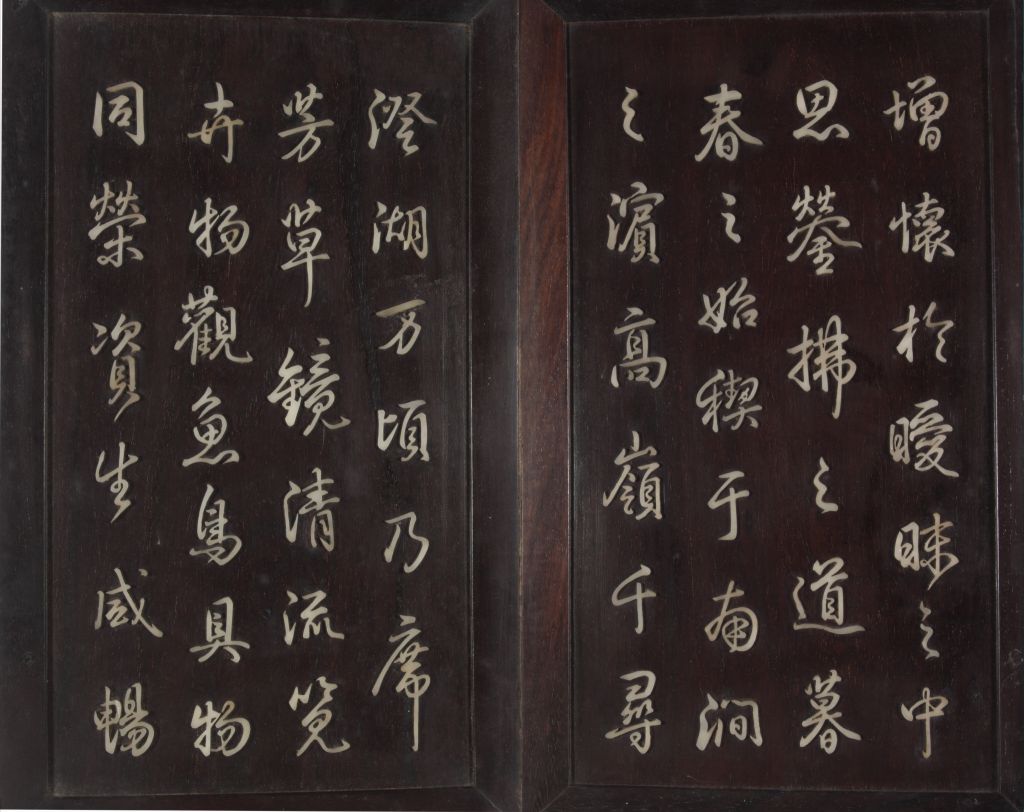 增懷於曖昧之中
思鎣拂之道暮
春之始稧于南澗
之濱高嶺千尋
澄湖万頃乃席
芳草鏡清流覽
卉物觀魚鳥具物
同榮資生咸暢